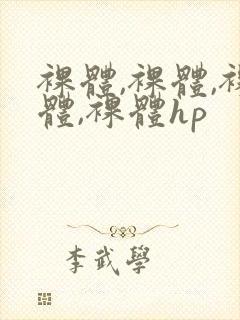 裸體,裸體,裸
體,裸體hp
李武學